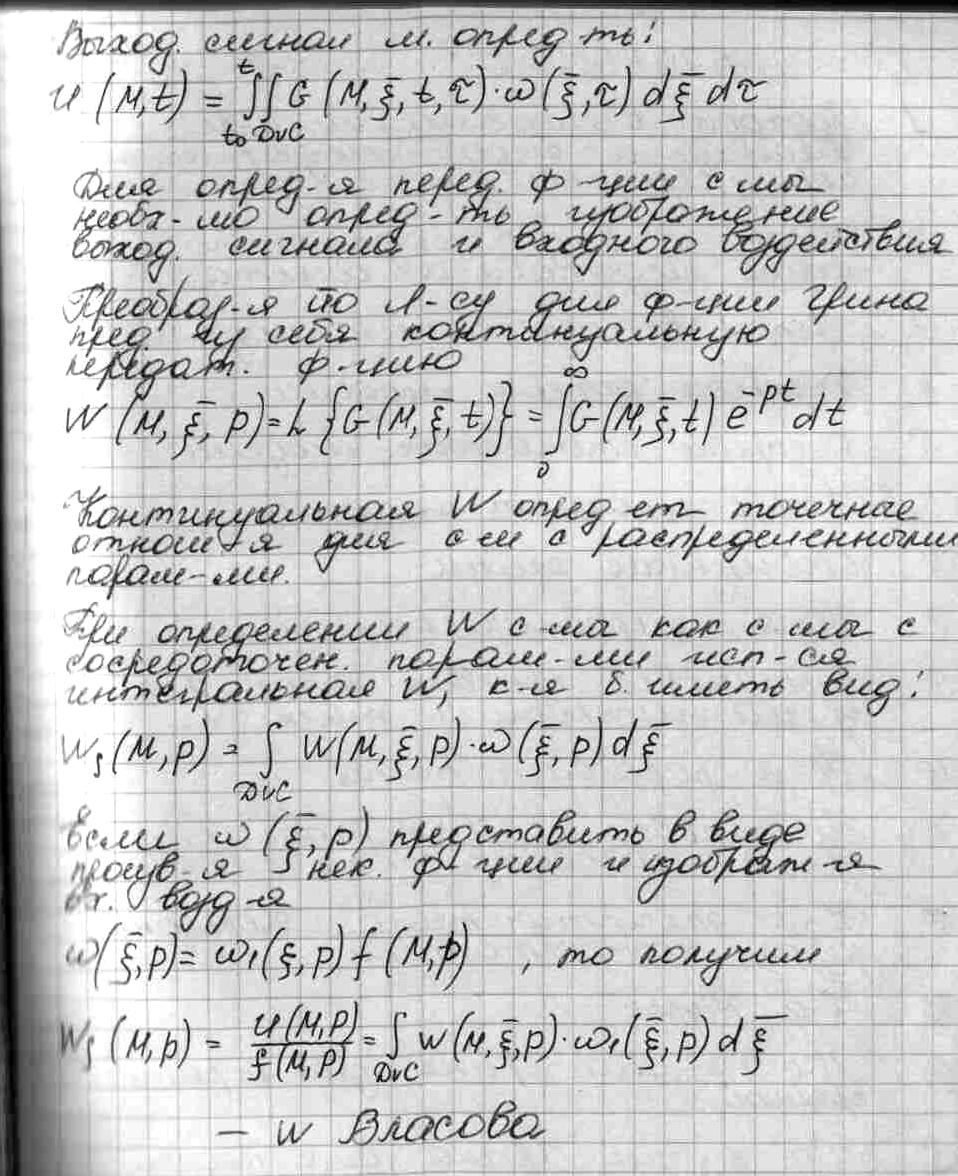 Выход. сигнал м. опред-ть:
u (M,t) = ∫_{t₀}^{t} ∫_{D∪C} G (M, ξ̄, t, τ)·ω(ξ̄,τ) dξ̄ dτ
Для опред-я перед. ф-ции с-мы
необх-мо опред-ть изображение
выход. сигнала и входного воздействия
Преобраз-я по Л-су для ф-ции Грина
пред. собя континуальную
передат. ф-цию
W (M, ξ̄, p) = L {G (M, ξ̄, t)} = ∫_0^∞ G (M, ξ̄, t) e^{-pt} dt
Континуальная W опред-ет точечные
отнош-я для с-м с распределенными
парам-ми.
При определении W с-мы как с-мы с
сосредоточен. парам-ми исп-ся
интегральная W, к-я б. иметь вид:
W_∫ (M, p) = ∫_{D∪C} W(M, ξ̄, p)·ω(ξ̄, p) dξ̄
Если ω(ξ̄, p) представить в виде
произв-я нек. ф-ции и изображ-я
вх. возд-я
ω(ξ̄,p) = ω₁(ξ, p) f (M, p) , то получим
W_∫ (M, p) = u(M,p)/f(M,p) = ∫_{D∪C} W(M, ξ̄, p)·ω₁(ξ̄, p) dξ̄
– W Власова